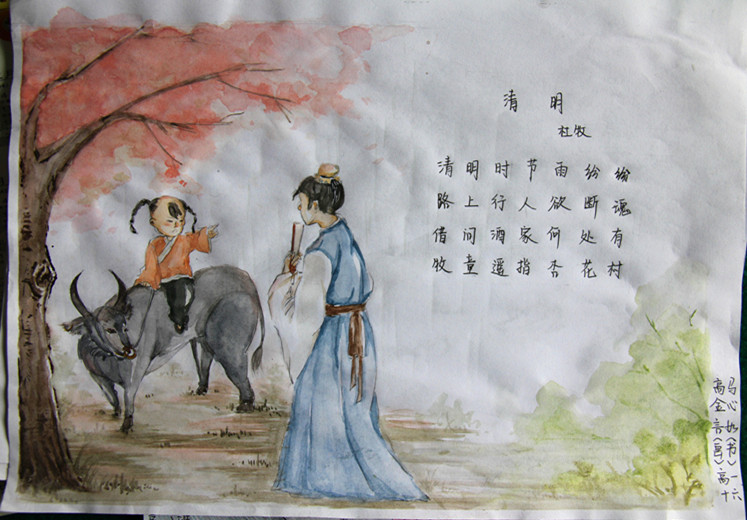 清 明
杜牧
清明时节雨纷纷
路上行人欲断魂
借问酒家何处有
牧童遥指杏花村
马心如（书）
高金言（画）
高一
十六